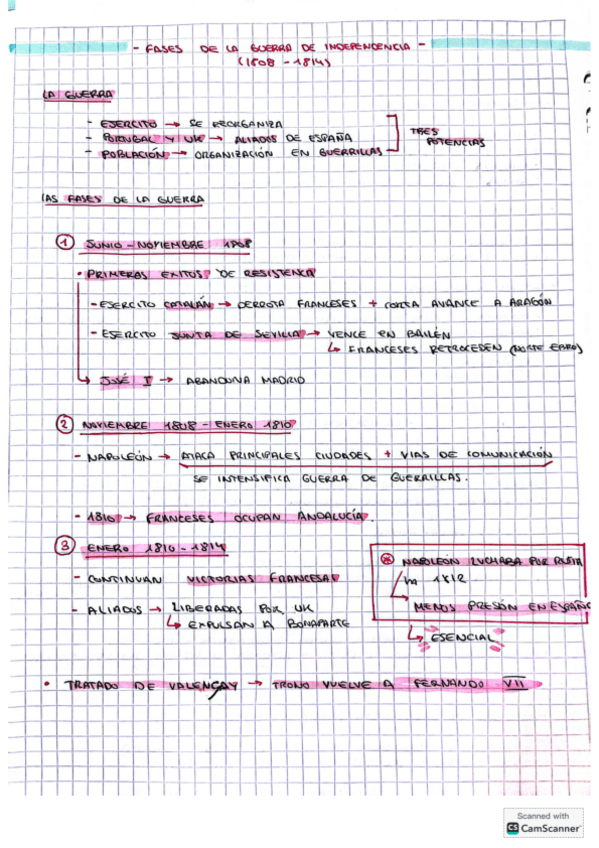 - FASES DE LA GUERRA DE INDEPENDENCIA -
(1808 - 1814)
LA GUERRA
- EJERCITO → SE REORGANIZA
- PORTUGAL Y UK → ALIADOS DE ESPAÑA
- POBLACIÓN → ORGANIZACIÓN EN GUERRILLAS
TRES
POTENCIAS
LAS FASES DE LA GUERRA
① JUNIO - NOVIEMBRE 1808
• PRIMEROS EXITOS DE RESISTENCIA
- EJERCITO CATALÁN → DERROTA FRANCESES + CORTA AVANCE A ARAGÓN
- EJERCITO JUNTA DE SEVILLA → VENCE EN BAILÉN
↳ FRANCESES RETROCEDEN (NORTE EBRO)
↳ JOSÉ I → ABANDONA MADRID
② NOVIEMBRE 1808 - ENERO 1810
- NAPOLEÓN → ATACA PRINCIPALES CIUDADES + VIAS DE COMUNICACIÓN
SE INTENSIFICA GUERRA DE GUERRILLAS.
- 1810 → FRANCESES OCUPAN ANDALUCÍA.
③ ENERO 1810 - 1814
- CONTINUAN VICTORIAS FRANCESAS
- ALIADOS → LIBERADAS POR UK
↳ EXPULSAN A BONAPARTE
* NAPOLEÓN LUCHABA POR RUSIA
1812
↳ MENOS PRESIÓN EN ESPAÑA
↳ ESENCIAL
• TRATADO DE VALENÇAY → TRONO VUELVE A FERNANDO VII
Scanned with
CS CamScanner